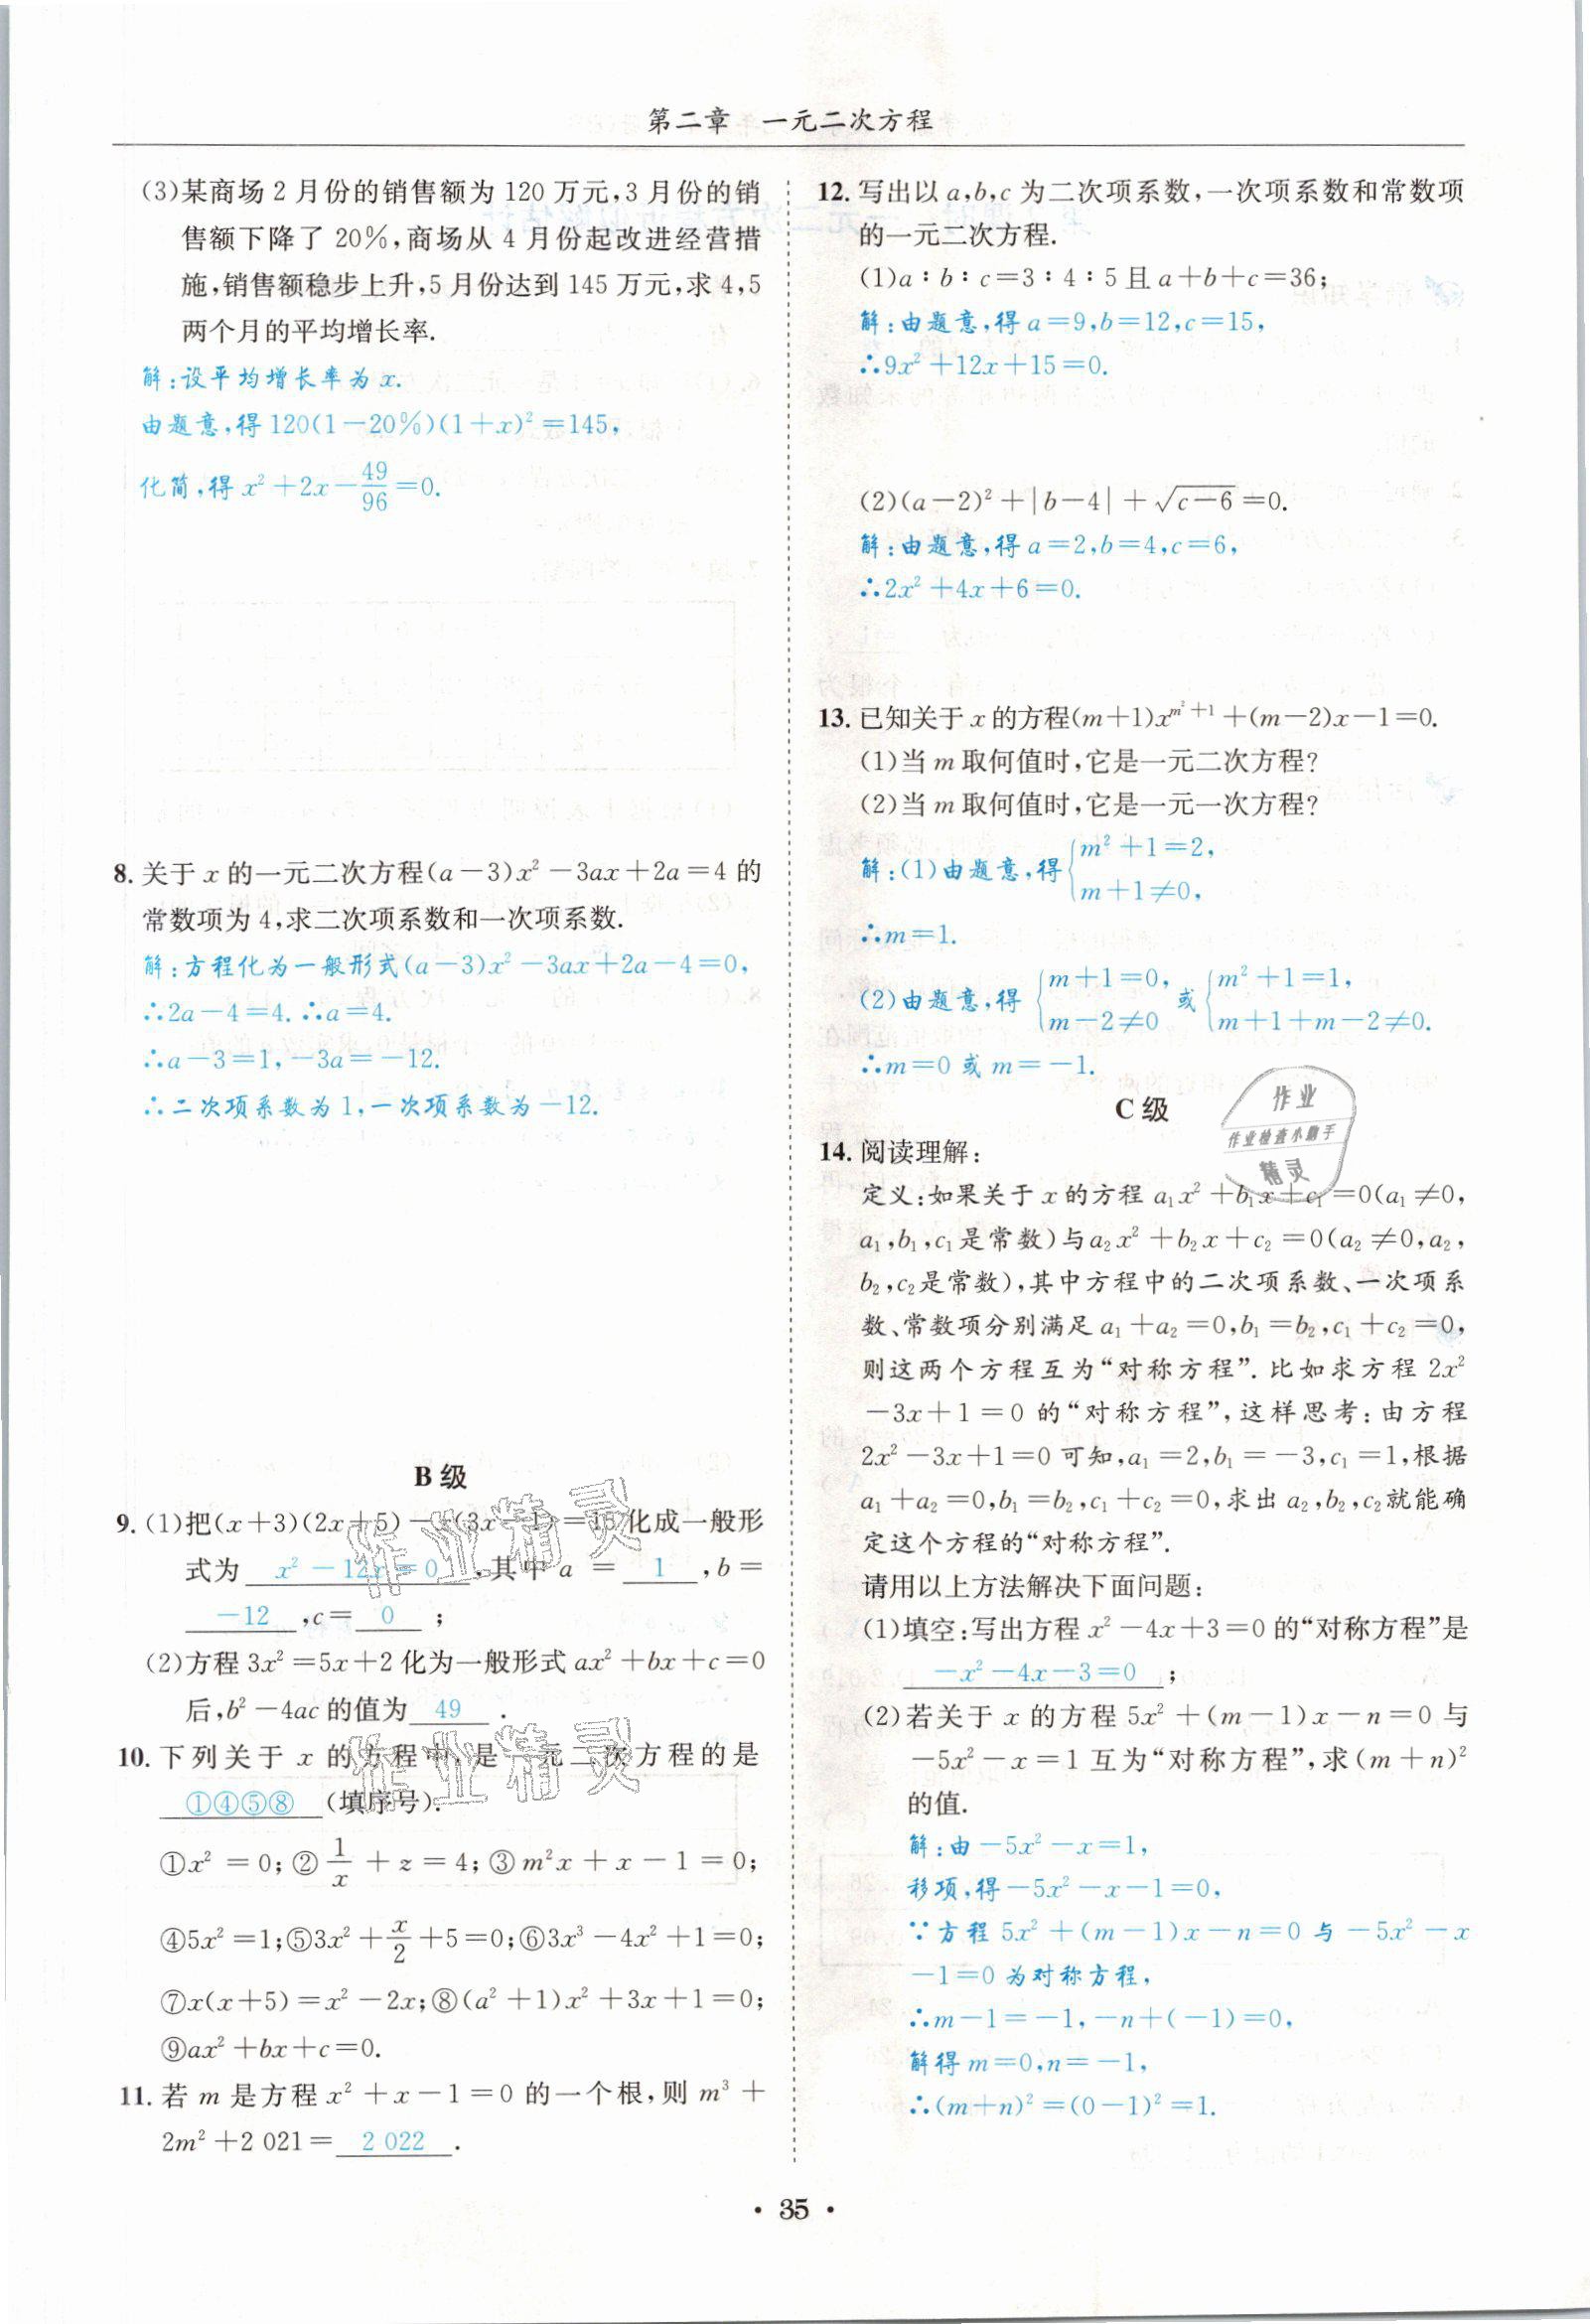 第二章 一元二次方程
(3)某商场 2 月份的销售额为 120 万元,3 月份的销
售额下降了 20%,商场从 4 月份起改进经营措
施,销售额稳步上升,5 月份达到 145 万元,求 4,5
两个月的平均增长率.
解:设平均增长率为 x.
由题意,得 120(1-20%)(1+x)²=145,
化简,得 x²+2x-49/96=0.
8. 关于 x 的一元二次方程(a-3)x²-3ax+2a=4 的
常数项为 4,求二次项系数和一次项系数.
解:方程化为一般形式(a-3)x²-3ax+2a-4=0,
∴2a-4=4.∴a=4.
∴a-3=1,-3a=-12.
∴二次项系数为 1,一次项系数为-12.
B 级
9. (1)把(x+3)(2x+5)-x(3x-1)=15 化成一般形
式为 x²-12x=0 ,其中 a = 1 ,b=
-12 ,c= 0 ;
(2)方程 3x²=5x+2 化为一般形式 ax²+bx+c=0
后,b²-4ac 的值为 49 .
10. 下列关于 x 的方程中,是一元二次方程的是
①④⑤⑧ (填序号).
①x²=0;②1/x+z=4;③m²x+x-1=0;
④5x²=1;⑤3x²+x/2+5=0;⑥3x³-4x²+1=0;
⑦x(x+5)=x²-2x;⑧(a²+1)x²+3x+1=0;
⑨ax²+bx+c=0.
11. 若 m 是方程 x²+x-1=0 的一个根,则 m³+
2m²+2 021= 2 022 .
12. 写出以 a,b,c 为二次项系数,一次项系数和常数项
的一元二次方程.
(1)a∶b∶c=3∶4∶5 且 a+b+c=36;
解:由题意,得 a=9,b=12,c=15,
∴9x²+12x+15=0.
(2)(a-2)²+|b-4|+√(c-6)=0.
解:由题意,得 a=2,b=4,c=6,
∴2x²+4x+6=0.
13. 已知关于 x 的方程(m+1)x^(m²+1)+(m-2)x-1=0.
(1)当 m 取何值时,它是一元二次方程?
(2)当 m 取何值时,它是一元一次方程?
解:(1)由题意,得{m²+1=2,
m+1≠0,
∴m=1.
(2)由题意,得{m+1=0, m-2≠0 或{m²+1=1, m+1+m-2≠0.
∴m=0 或 m=-1.
C 级
14. 阅读理解:
定义:如果关于 x 的方程 a₁x²+b₁x+c₁=0(a₁≠0,
a₁,b₁,c₁是常数)与a₂x²+b₂x+c₂=0(a₂≠0,a₂,
b₂,c₂是常数),其中方程中的二次项系数、一次项系
数、常数项分别满足 a₁+a₂=0,b₁=b₂,c₁+c₂=0,
则这两个方程互为“对称方程”. 比如求方程 2x²
-3x+1=0 的“对称方程”,这样思考:由方程
2x²-3x+1=0 可知,a₁=2,b₁=-3,c₁=1,根据
a₁+a₂=0,b₁=b₂,c₁+c₂=0,求出 a₂,b₂,c₂就能确
定这个方程的“对称方程”.
请用以上方法解决下面问题:
(1)填空:写出方程 x²-4x+3=0 的“对称方程”是
-x²-4x-3=0 ;
(2)若关于 x 的方程 5x²+(m-1)x-n=0 与
-5x²-x=1 互为“对称方程”,求(m+n)²
的值.
解:由-5x²-x=1,
移项,得-5x²-x-1=0,
∵方程 5x²+(m-1)x-n=0 与-5x²-x
-1=0 为对称方程,
∴m-1=-1,-n+(-1)=0,
解得 m=0,n=-1,
∴(m+n)²=(0-1)²=1.
作业
作业检查小助手
精灵
作业精灵
作业精灵
• 35 •